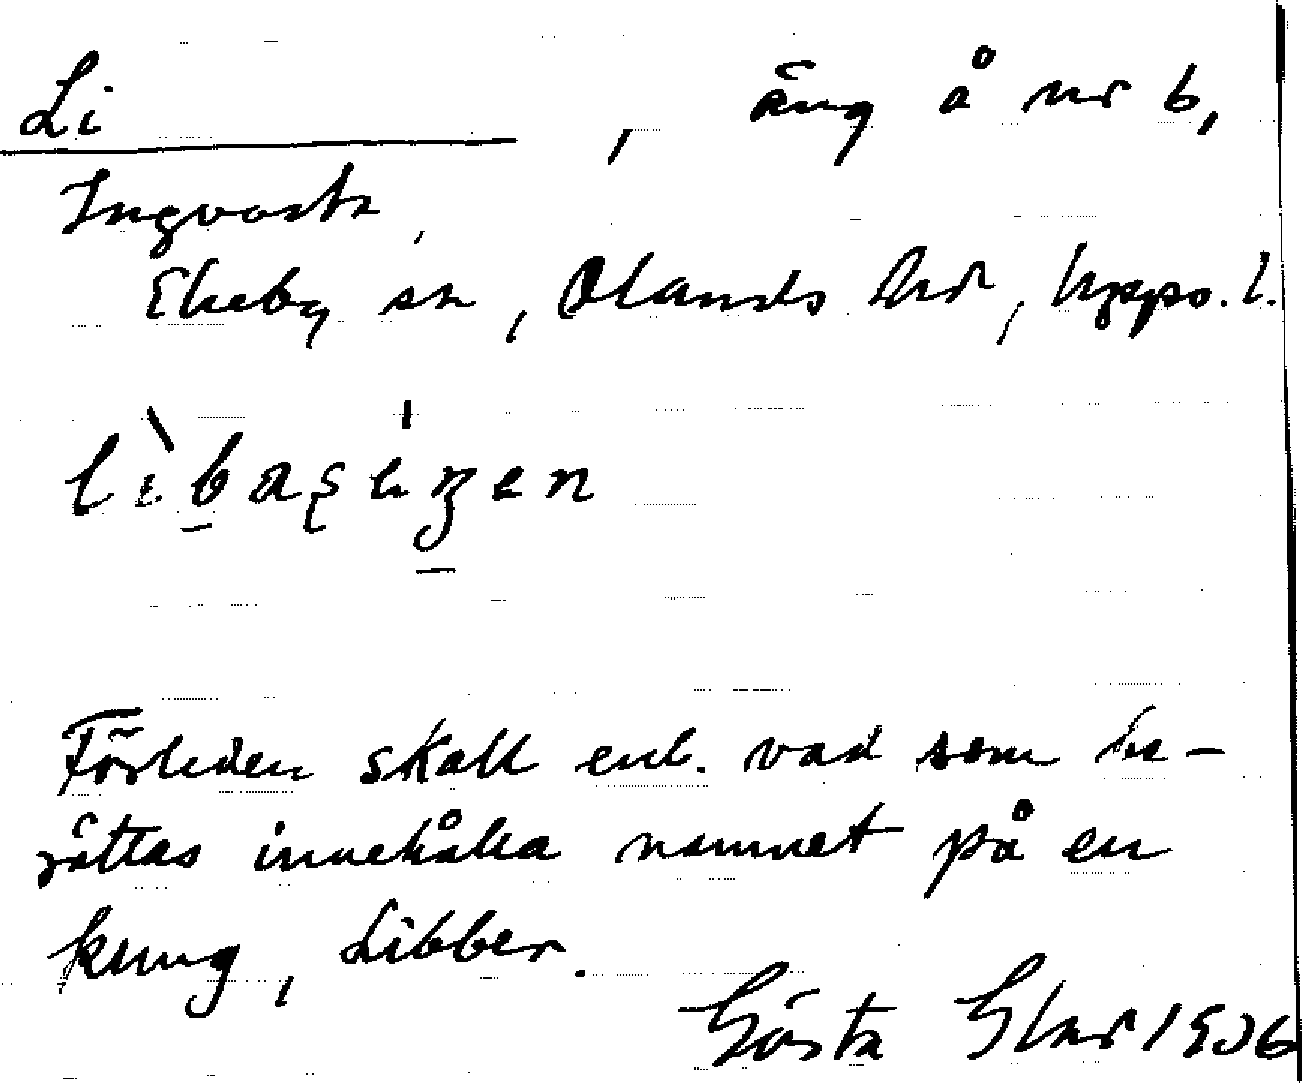 Li , äng å nr 6,
Ingvasta,
Ekeby sn, Olands hd, Upps. l.
Förleden skall enl. vad som be-
rättas innehålla namnet på en
kung, Libber.
Gösta